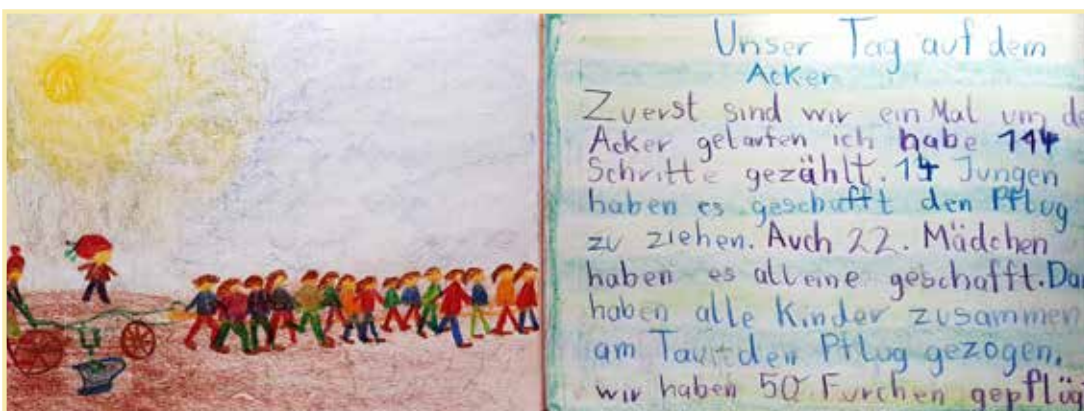 Unser Tag auf dem
Acker
Zuerst sind wir ein Mal um
Acker gelaufen ich habe 114
Schritte gezählt. 14 Jungen
haben es geschafft den Pflug
zu ziehen. Auch 22. Mädchen
haben es alleine geschafft.
haben alle Kinder zusammen
am Tau den Pflug gezogen.
wir haben 50 Furchen